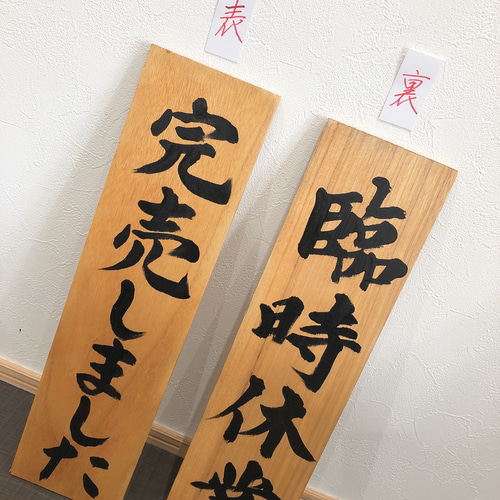 表
完売しました
裏
臨時休業